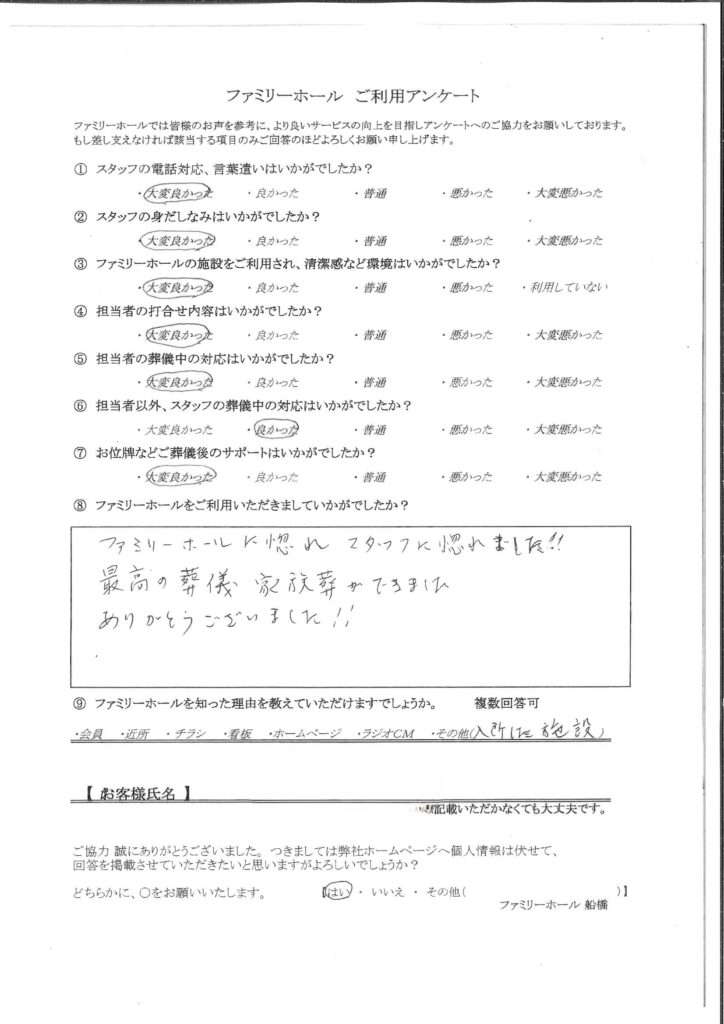 ファミリーホール ご利用アンケート
ファミリーホールでは皆様のお声を参考に、より良いサービスの向上を目指しアンケートへのご協力をお願いしております。
もし差し支えなければ該当する項目のみご回答のほどよろしくお願い申し上げます。
① スタッフの電話対応、言葉遣いはいかがでしたか？
・大変良かった ・良かった ・普通 ・悪かった ・大変悪かった
② スタッフの身だしなみはいかがでしたか？
・大変良かった ・良かった ・普通 ・悪かった ・大変悪かった
③ ファミリーホールの施設をご利用され、清潔感など環境はいかがでしたか？
・大変良かった ・良かった ・普通 ・悪かった ・利用していない
④ 担当者の打合せ内容はいかがでしたか？
・大変良かった ・良かった ・普通 ・悪かった ・大変悪かった
⑤ 担当者の葬儀中の対応はいかがでしたか？
・大変良かった ・良かった ・普通 ・悪かった ・大変悪かった
⑥ 担当者以外、スタッフの葬儀中の対応はいかがでしたか？
・大変良かった ・良かった ・普通 ・悪かった ・大変悪かった
⑦ お位牌などご葬儀後のサポートはいかがでしたか？
・大変良かった ・良かった ・普通 ・悪かった ・大変悪かった
⑧ ファミリーホールをご利用いただきましていかがでしたか？
ファミリーホールに惚れ スタッフに惚れました!!
最高の葬儀 家族葬ができました
ありがとうございました!!
⑨ ファミリーホールを知った理由を教えていただけますでしょうか。 複数回答可
・会員 ・近所 ・チラシ ・看板 ・ホームページ ・ラジオCM ・その他(入所した施設)
【 お客様氏名 】
記載いただかなくても大丈夫です。
ご協力 誠にありがとうございました。つきましては弊社ホームページへ個人情報は伏せて、
回答を掲載させていただきたいと思いますがよろしいでしょうか？
どちらかに、○をお願いいたします。 【はい ・ いいえ ・ その他( )】
ファミリーホール 船橋